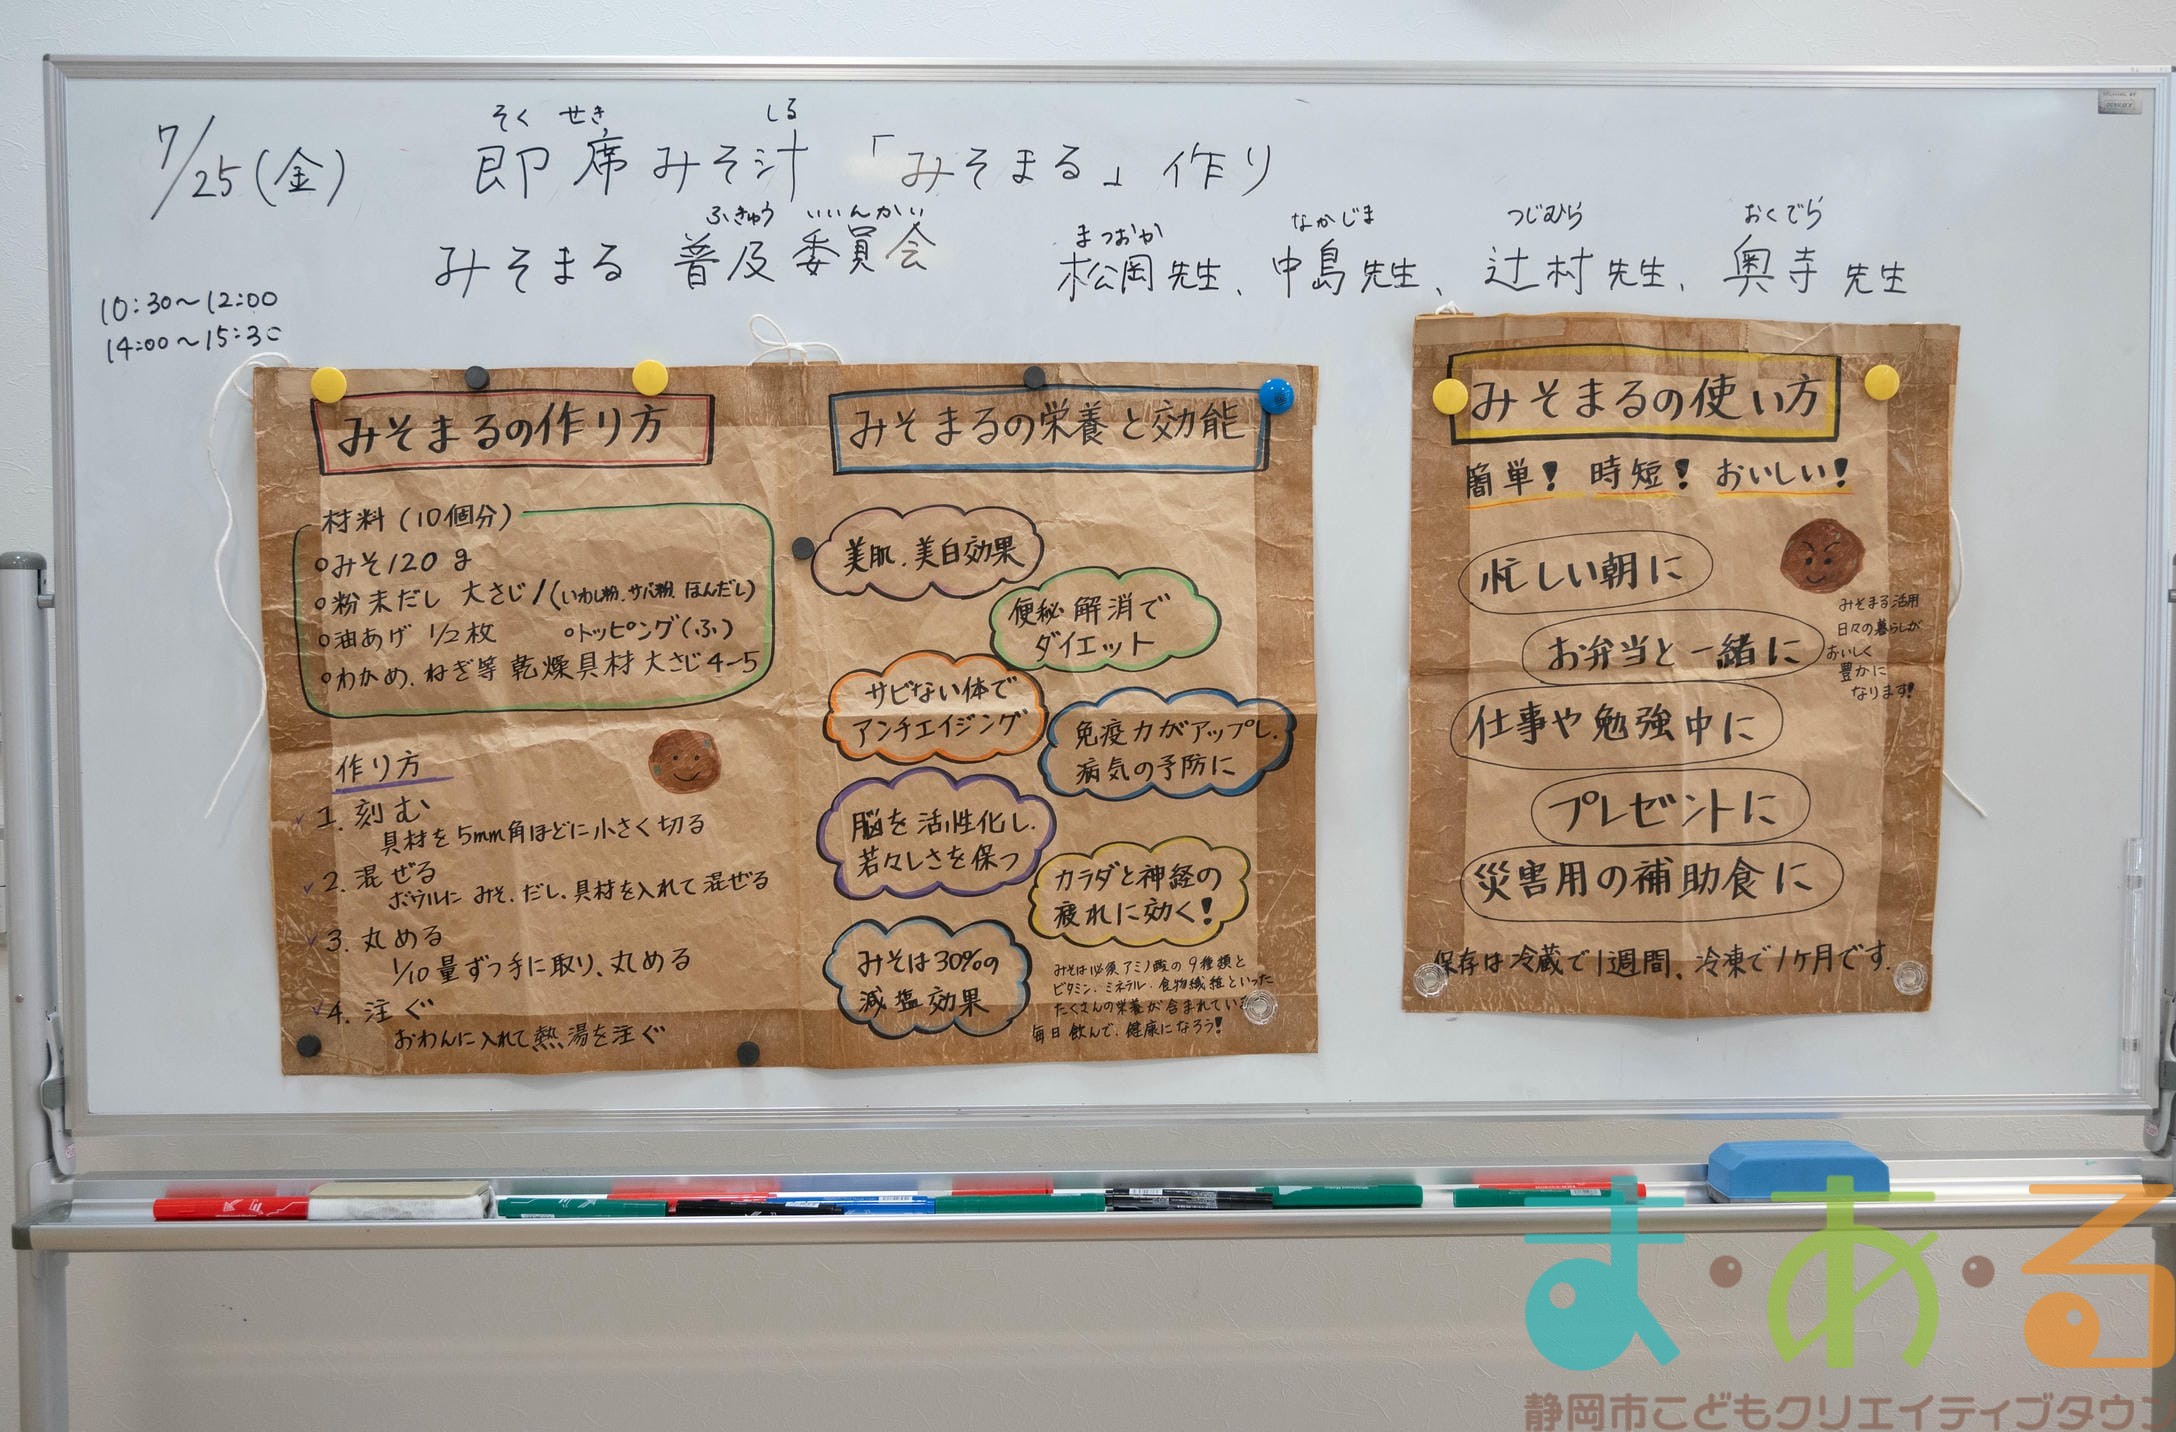 7/25(金)
そくせき しる
即席みそ汁 「みそまる」作り
ふきゅう いいんかい
みそまる 普及委員会
まつおか なかじま つじむら おくでら
松岡先生、中島先生、辻村先生、奥寺先生
10:30〜12:00
14:00〜15:30
みそまるの作り方
材料(10個分)
○みそ120g
○粉末だし 大さじ1(いわし粉.サバ粉.ほんだし)
○油あげ 1/2枚 ○トッピング(ふ)
○わかめ.ねぎ等 乾燥具材 大さじ4-5
作り方
1. 刻む
具材を5mm角ほどに小さく切る
2. 混ぜる
ボウルに みそ.だし.具材を入れて混ぜる
3. 丸める
1/10量ずつ手に取り、丸める
4. 注ぐ
おわんに入れて熱湯を注ぐ
みそまるの栄養と効能
美肌.美白効果
便秘解消で
ダイエット
サビない体で
アンチエイジング
免疫力がアップし.
病気の予防に
脳を活性化し.
若々しさを保つ
カラダと神経の
疲れに効く!
みそは30%の
減塩効果
みそは必須アミノ酸の9種類と
ビタミン.ミネラル.食物繊維といった
たくさんの栄養が含まれている
毎日飲んで、健康になろう!
みそまるの使い方
簡単! 時短! おいしい!
忙しい朝に
お弁当と一緒に
仕事や勉強中に
プレゼントに
災害用の補助食に
みそまる活用
日々の暮らしが
おいしく
豊かに
なります!
保存は冷蔵で1週間、冷凍で1ヶ月です.
ま・あ・る
静岡市こどもクリエイティブタウン